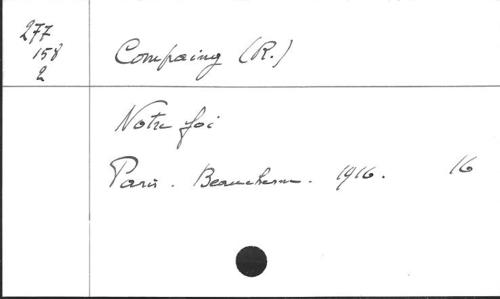 277
158
2
Compaing (R.)
Notre foi
Paris. Beauchesne. 1916. 16